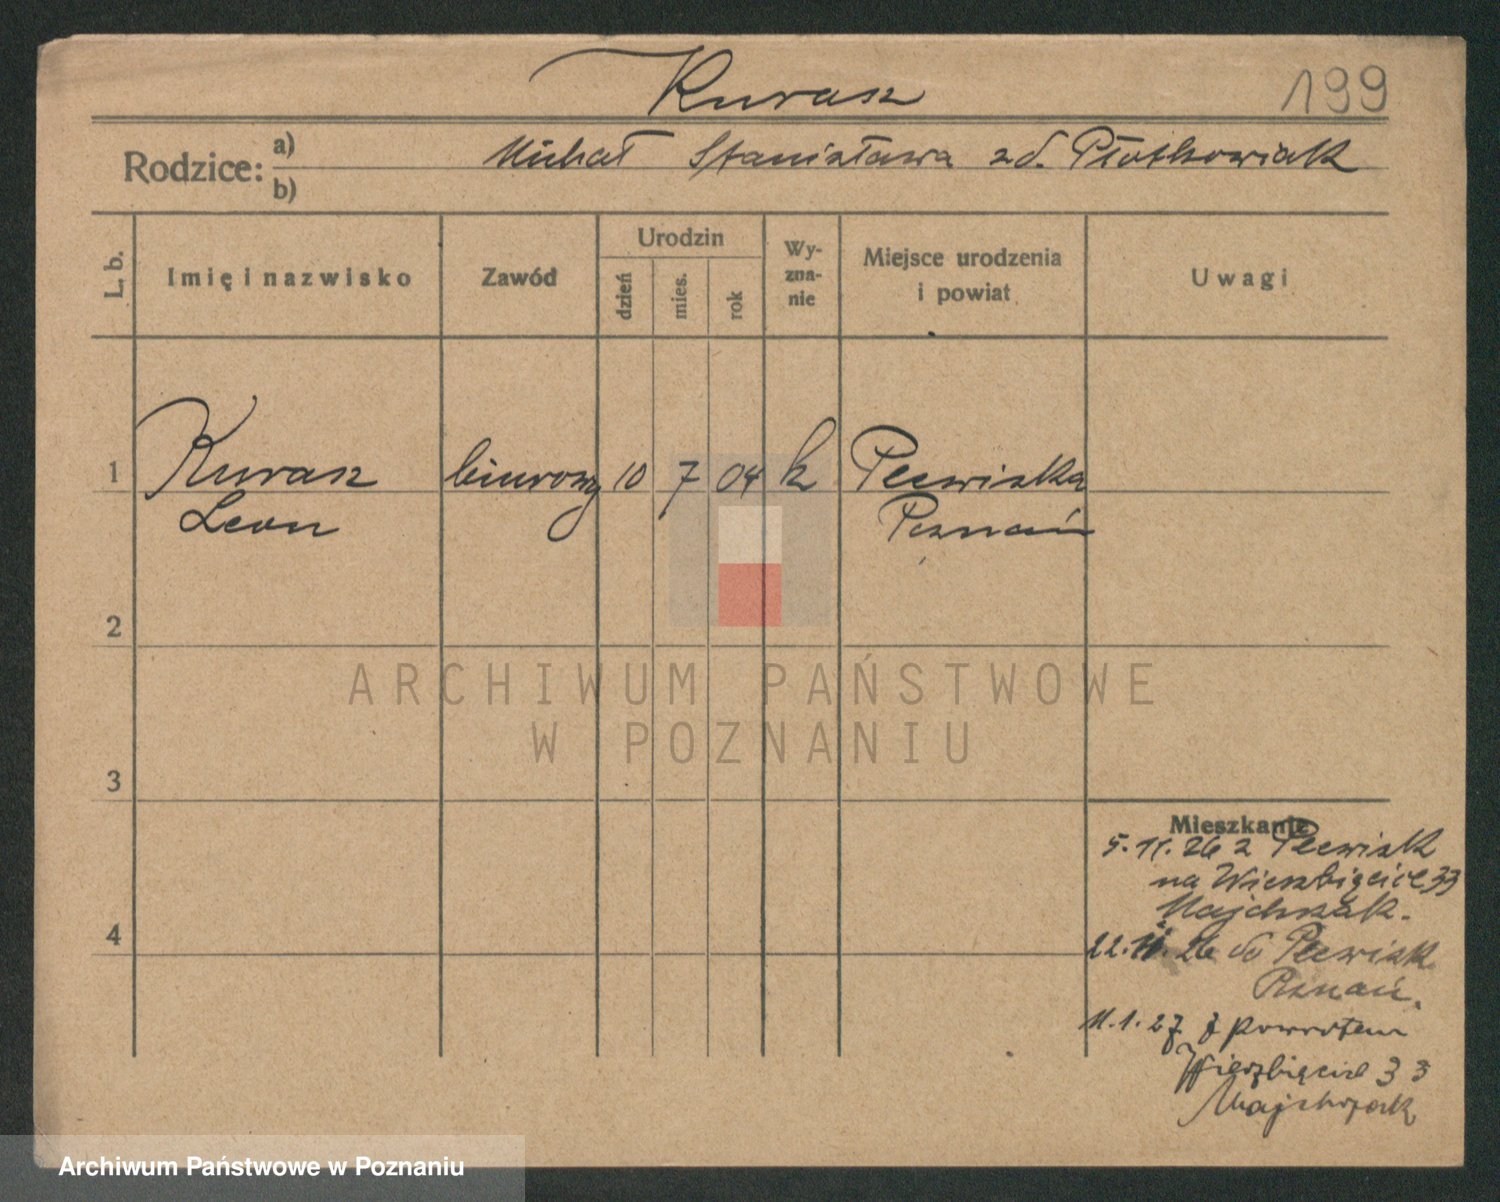 Kurasz
199
Rodzice: a) Michał Stanisława z d. Płotkowiak
b)
L. b.
Imię i nazwisko
Zawód
Urodzin
dzień
mies.
rok
Wy-
zna-
nie
Miejsce urodzenia
i powiat
Uwagi
1 Kurasz biurowy 10 7 04 k Plewiska
Leon Poznań
2
3
4
Mieszkanie
5.11.26 z Plewisk
na Wierzbięcice 33
Majchrzak.
22.11.26 do Plewisk
Poznań.
11.1.27 z powrotem
Wierzbięcice 33
Majchrzak
ARCHIWUM PAŃSTWOWE
W POZNANIU
Archiwum Państwowe w Poznaniu